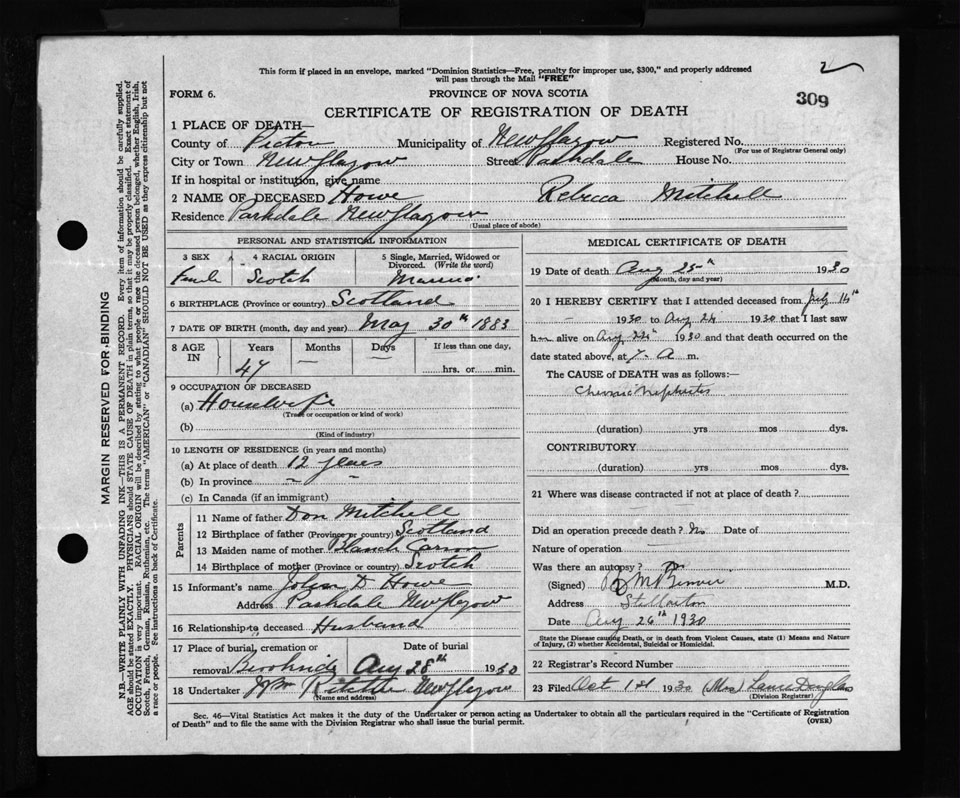 This form if placed in an envelope, marked "Dominion Statistics—Free, penalty for improper use, $300," and properly addressed
will pass through the Mail "FREE"
2
309
FORM 6.
PROVINCE OF NOVA SCOTIA
CERTIFICATE OF REGISTRATION OF DEATH
1 PLACE OF DEATH—
County of Pictou Municipality of New Glasgow Registered No.
(For use of Registrar General only)
City or Town New Glasgow Street Parkdale House No.
If in hospital or institution, give name
2 NAME OF DECEASED Howe Rebecca Mitchell
Residence Parkdale New Glasgow
(Usual place of abode)
PERSONAL AND STATISTICAL INFORMATION
3 SEX 4 RACIAL ORIGIN 5 Single, Married, Widowed or
Divorced. (Write the word)
Female Scotch Married
6 BIRTHPLACE (Province or country) Scotland
7 DATE OF BIRTH (month, day and year) May 30th 1883
8 AGE IN Years Months Days If less than one day,
47 — — hrs. or min.
9 OCCUPATION OF DECEASED
(a) Housewife
(Trade or occupation or kind of work)
(b)
(Kind of industry)
10 LENGTH OF RESIDENCE (in years and months)
(a) At place of death 12 years
(b) In province
(c) In Canada (if an immigrant)
Parents
11 Name of father Don Mitchell
12 Birthplace of father (Province or country) Scotland
13 Maiden name of mother Blanch Carson
14 Birthplace of mother (Province or country) Scotch
15 Informant's name John D Howe
Address Parkdale New Glasgow
16 Relationship to deceased Husband
17 Place of burial, cremation or Date of burial
removal Aug 28th 1930
18 Undertaker Ritchie New Glasgow
(Name and address)
MEDICAL CERTIFICATE OF DEATH
19 Date of death Aug 25th 1930
(Month, day and year)
20 I HEREBY CERTIFY that I attended deceased from July 14th
1930 to Aug 24 1930 that I last saw
h alive on Aug 24 1930 and that death occurred on the
date stated above, at 7. A m.
The CAUSE of DEATH was as follows:—
Chronic Nephritis
(duration) yrs mos dys.
CONTRIBUTORY
(duration) yrs mos dys.
21 Where was disease contracted if not at place of death?
Did an operation precede death? No Date of
Nature of operation
Was there an autopsy?
(Signed) M.D.
Address Stellarton
Date Aug 26th 1930
State the Disease causing Death, or in death from Violent Causes, state (1) Means and Nature
of Injury, (2) whether Accidental, Suicidal or Homicidal.
22 Registrar's Record Number
23 Filed Oct 1st 1930 (Mrs) Douglas
(Division Registrar)
Sec. 46—Vital Statistics Act makes it the duty of the Undertaker or person acting as Undertaker to obtain all the particulars required in the "Certificate of Registration
of Death" and to file the same with the Division Registrar who shall issue the burial permit.
(OVER)
MARGIN RESERVED FOR BINDING
N.B.—WRITE PLAINLY WITH UNFADING INK—THIS IS A PERMANENT RECORD. Every item of information should be carefully supplied.
AGE should be stated EXACTLY. PHYSICIANS should STATE CAUSE OF DEATH in plain terms, so that it may be properly classified. Exact statement of
OCCUPATION is very important. RACIAL ORIGIN will be described by stating to what people or race the deceased person belonged, whether English, Irish,
Scotch, French, German, Russian, Ruthenian, etc. The terms "AMERICAN" or "CANADIAN" SHOULD NOT BE USED as they express citizenship but not
a race or people. See instructions on back of Certificate.